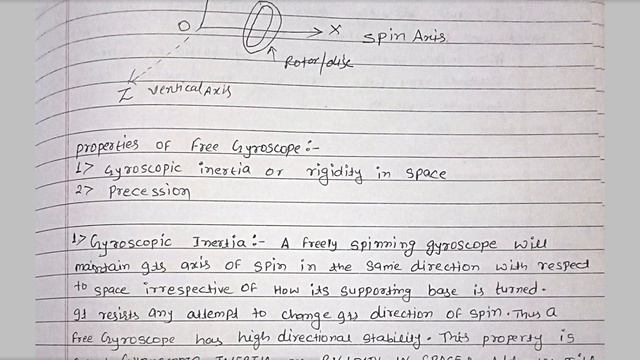 O
X
Spin Axis
Rotor/disc
Z vertical Axis
properties of Free Gyroscope:-
1> Gyroscopic inertia or rigidity in space
2> Precession
1> Gyroscopic Inertia:- A freely spinning gyroscope will
maintain its axis of spin in the same direction with respect
to space irrespective of How its supporting base is turned.
It resists any attempt to change its direction of spin. Thus a
free Gyroscope has high directional stability. This property is